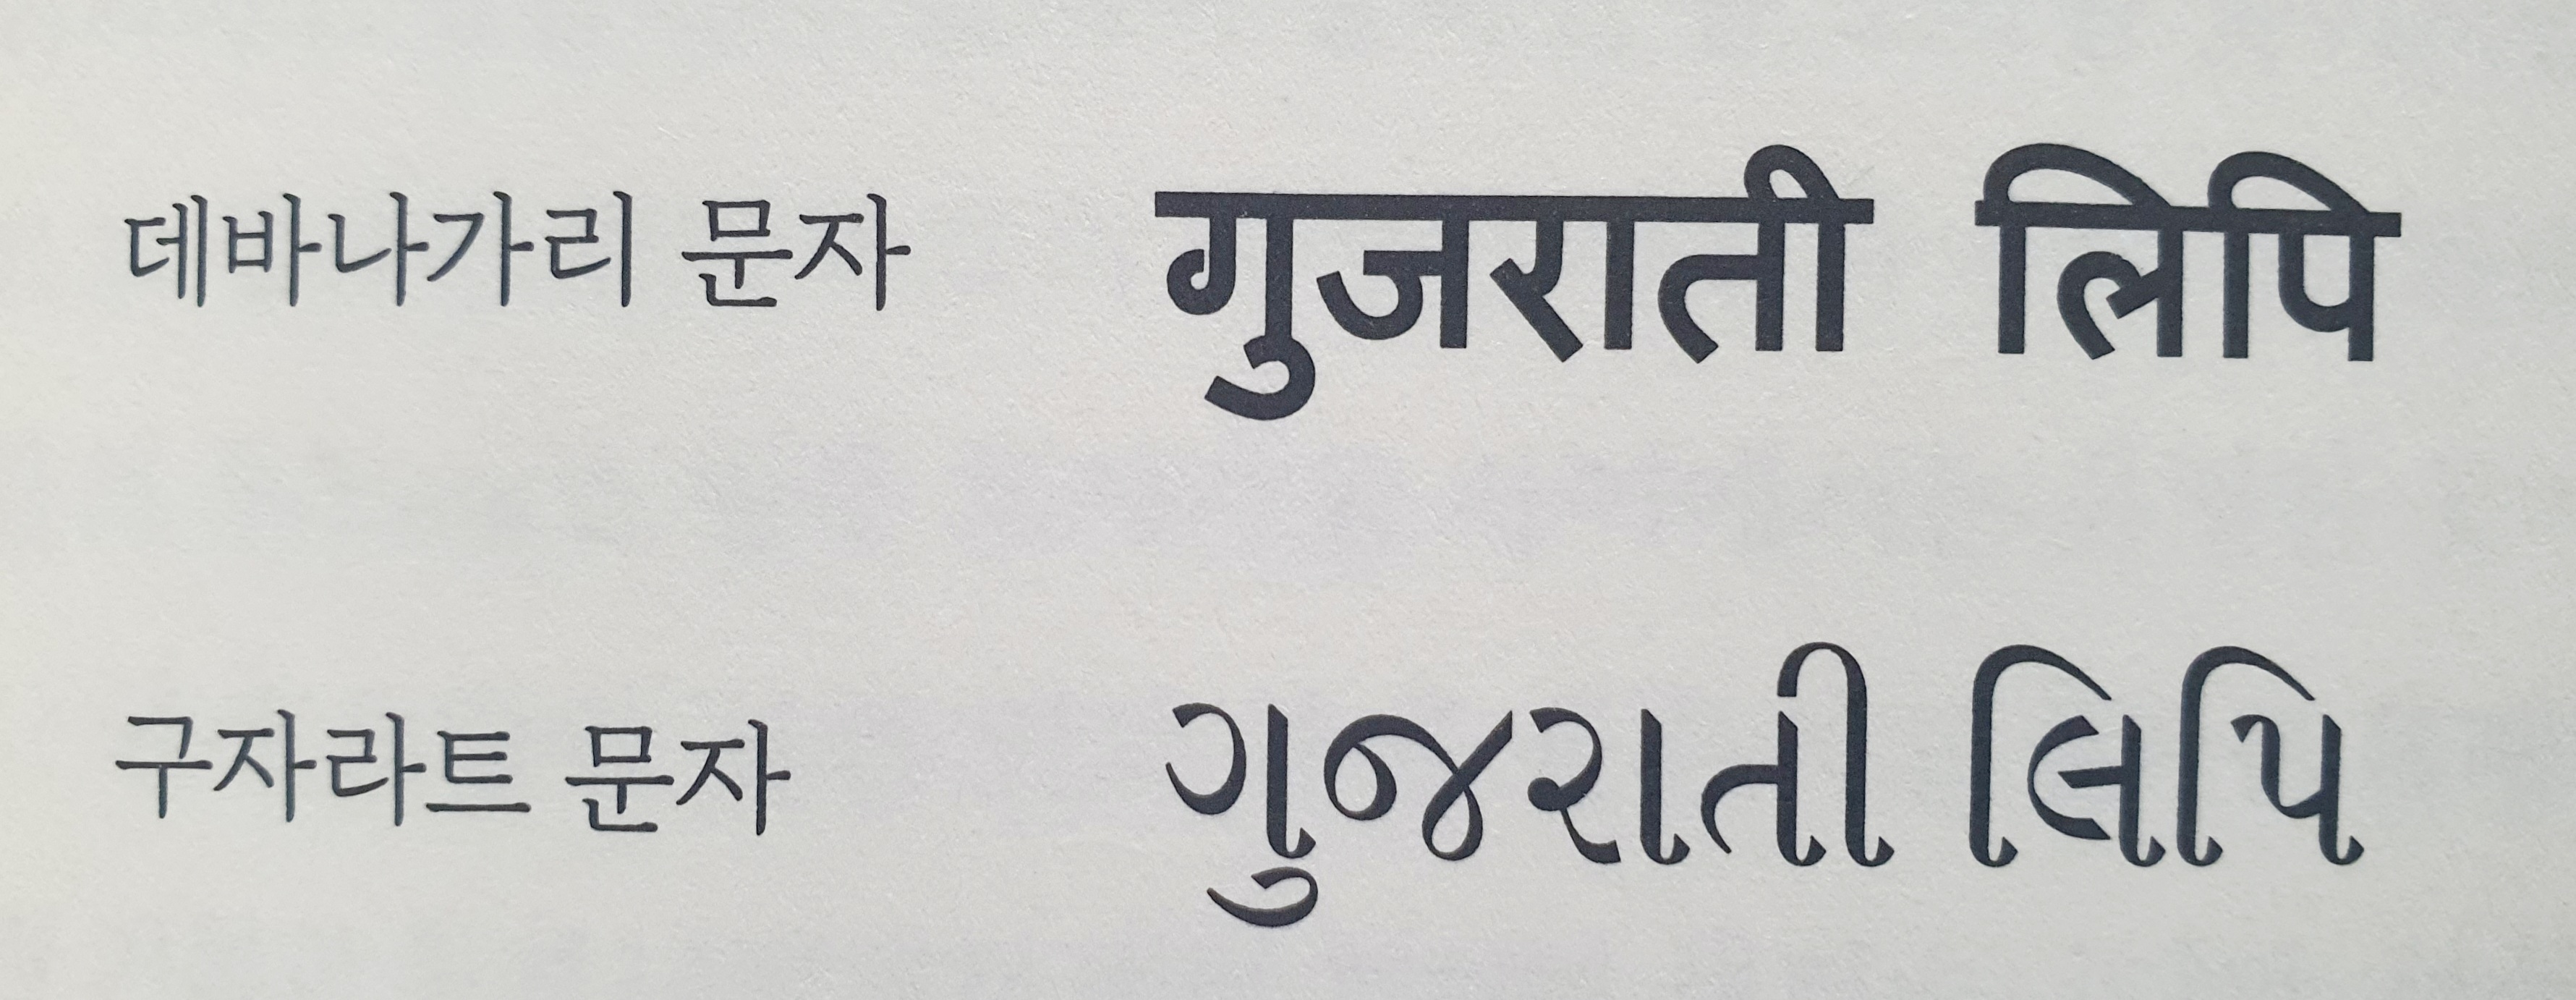 데바나가리 문자 गुजराती लिपि
구자라트 문자 ગુજરાતી લિપિ